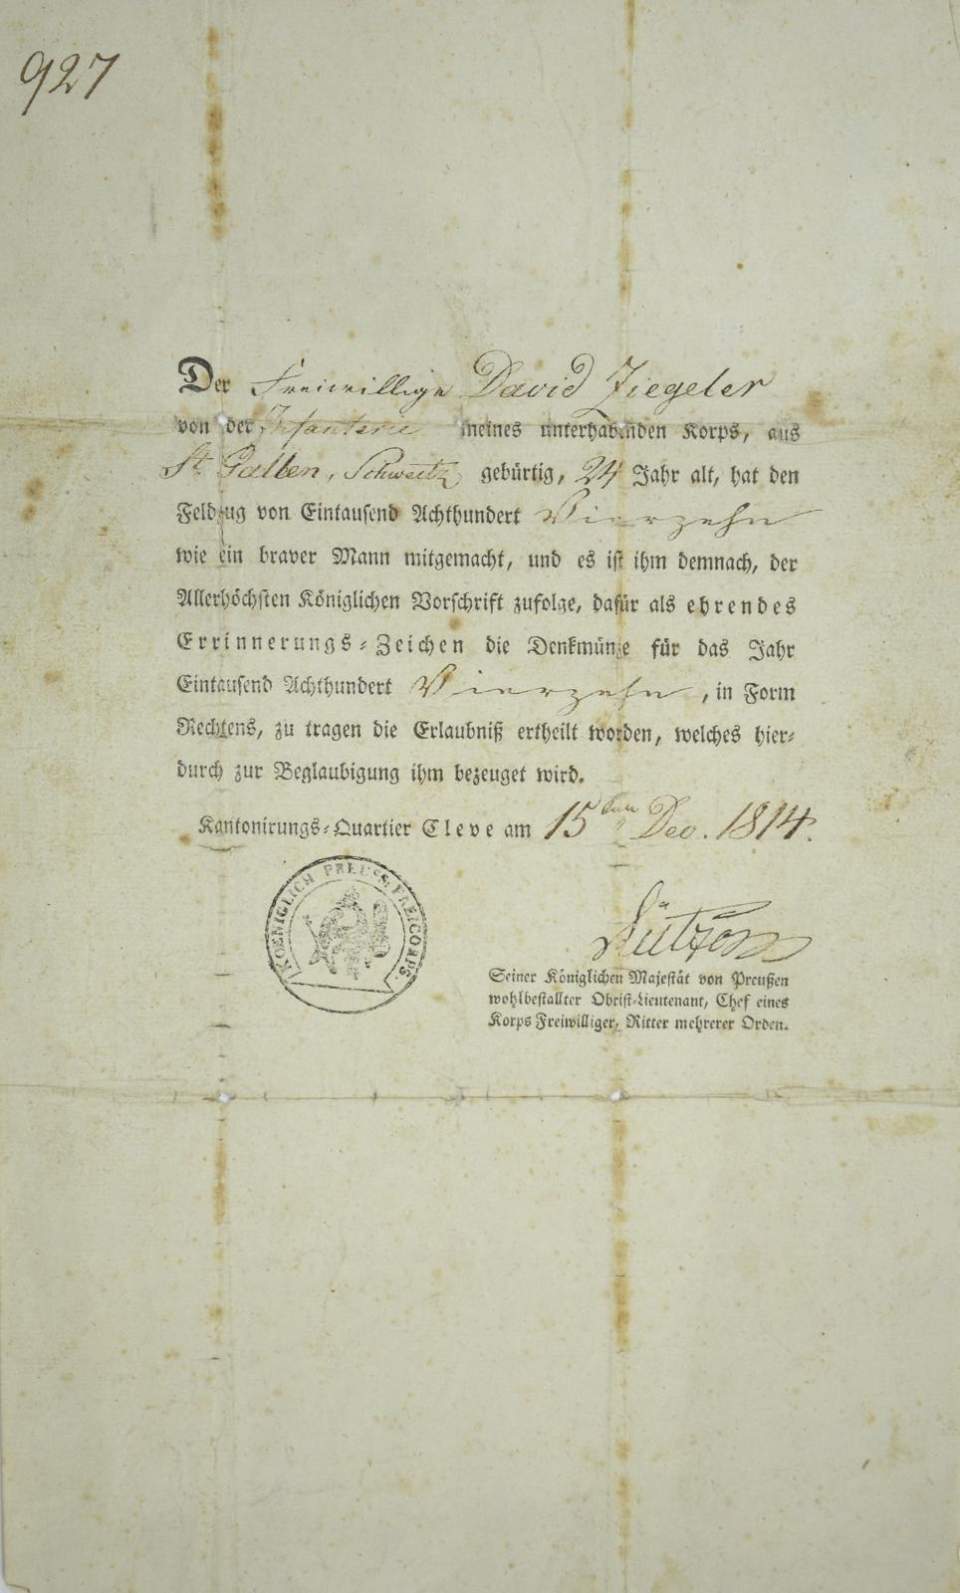 927
Der Freiwillige David Ziegeler
von der Infanterie meines unterhabenden Korps, aus
St. Gallen, Schweitz gebürtig, 24 Jahr alt, hat den
Feldzug von Eintausend Achthundert Vierzehn
wie ein braver Mann mitgemacht, und es ist ihm demnach, der
Allerhöchsten Königlichen Vorschrift zufolge, dafür als ehrendes
Errinnerungs-Zeichen die Denkmünze für das Jahr
Eintausend Achthundert Vierzehn, in Form
Rechtens, zu tragen die Erlaubniß ertheilt worden, welches hier-
durch zur Beglaubigung ihm bezeuget wird.
Kantonirungs-Quartier Cleve am 15ten Dec. 1814.
KOENIGLICH PREUSS. FREICORPS.
Lützow
Seiner Königlichen Majestät von Preußen
wohlbestallter Obrist-Lieutenant, Chef eines
Korps Freiwilliger, Ritter mehrerer Orden.